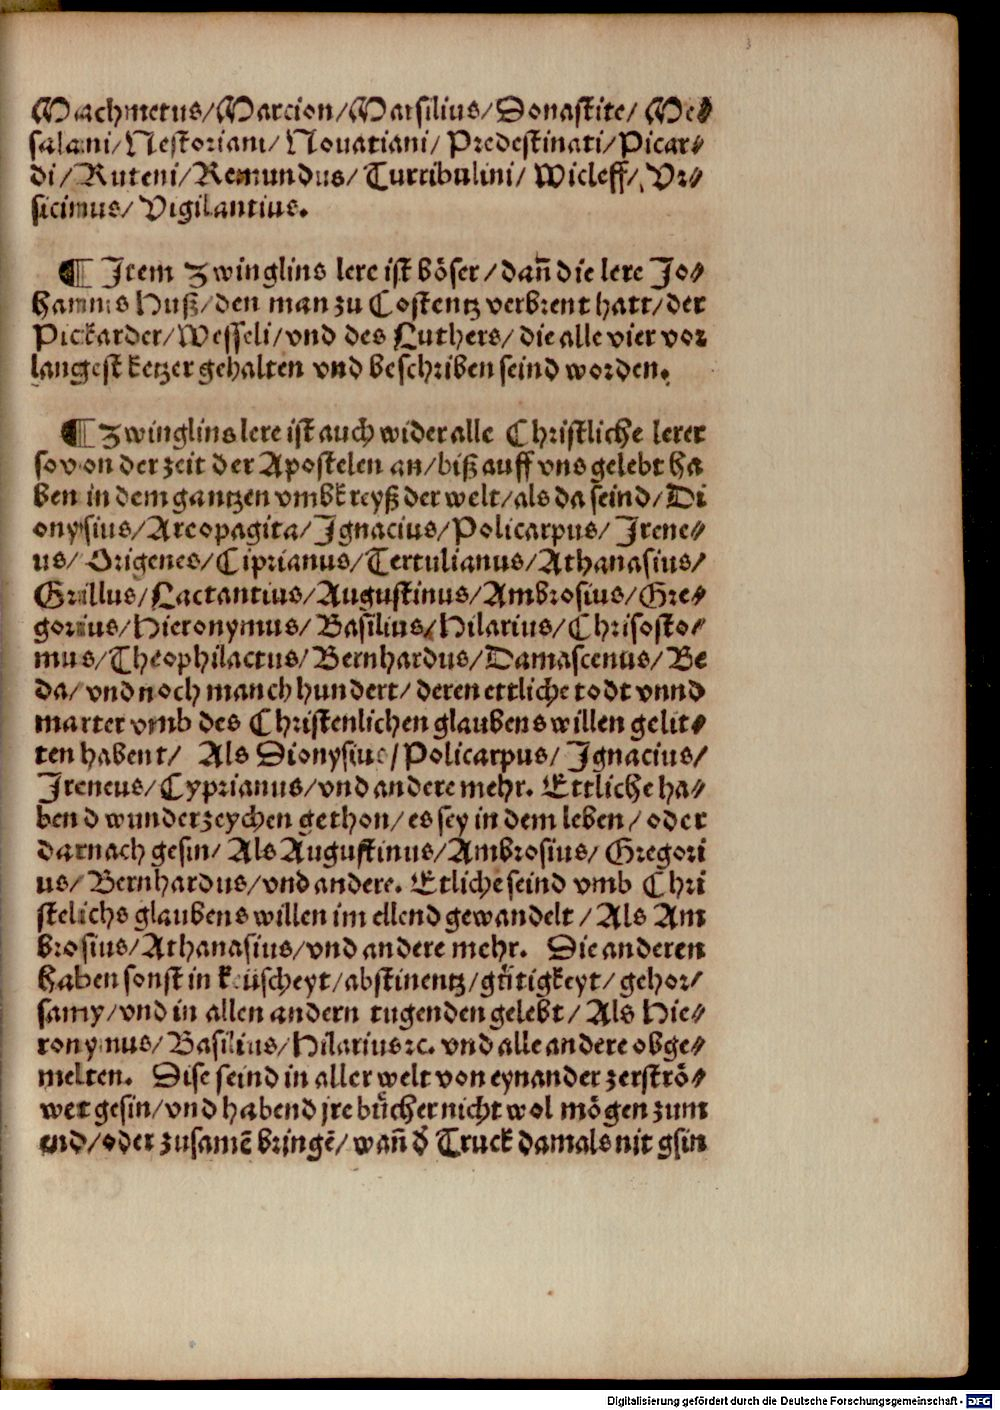 Machmetus/Marcion/Marsilius/Donastite/ Me⸗
salani/Nestoriani/Nouatiani/ Predestinati/Picar⸗
di/ Ruteni/Remundus/ Turribulini/ Wicleff/ Vr⸗
sicinus/ Vigilantius.
¶ Item Zwinglins lere ist böser/dañ die lere Jo⸗
hannis Huß/den man zu Costentz verbrent hatt/der
Pickarder/Wesseli/vnd des Luthers/ die alle vier vor
langest ketzer gehalten vnd beschriben seind worden.
¶ Zwinglins lere ist auch wider alle Christliche lerer
so von der zeit der Apostelen an/biß auff vns gelebt ha
ben in dem gantzen vmbkreyß der welt/als da seind/Di
onysius/Areopagita/Ignacius/Policarpus/ Irene⸗
us/ Origenes/Ciprianus/Tertulianus/Athanasius/
Grillus/Lactantius/Augustinus/Ambrosius/Gre⸗
gorius/Hieronymus/ Basilius/Hilarius/Chrisosto⸗
mus/Theophilactus/Bernhardus/Damascenus/Be
da/ vnd noch manch hundert/ deren ettliche todt vnnd
marter vmb des Christenlichen glaubens willen gelit⸗
ten habent/ Als Dionysius/Policarpus/ Ignacius/
Ireneus/Cyprianus/vnd andere mehr. Ettliche ha⸗
bend wunderzeychen gethon/ es sey in dem leben/ oder
darnach gesin/ Als Augustinus/Ambrosius/ Gregori
us/ Bernhardus/vnd andere. Etliche seind vmb Chri
stelichs glaubens willen im ellend gewandelt/ Als Am
brosius/Athanasius/vnd andere mehr. Die anderen
haben sonst in keüscheyt/abstinentz/gůtigkeyt/ gehor⸗
samy/vnd in allen andern tugenden gelebt/ Als Hie⸗
ronymus/ Basilius/Hilarius ꝛc. vnd alle andere obge⸗
melten. Dise seind in aller welt von eynander zerströ⸗
wet gesin/vnd habend jre bücher nicht wol mögen zum
end/oder zusamē bringē/ wañ d' Truck damals nit gsin
Digitalisierung gefördert durch die Deutsche Forschungsgemeinschaft - DFG